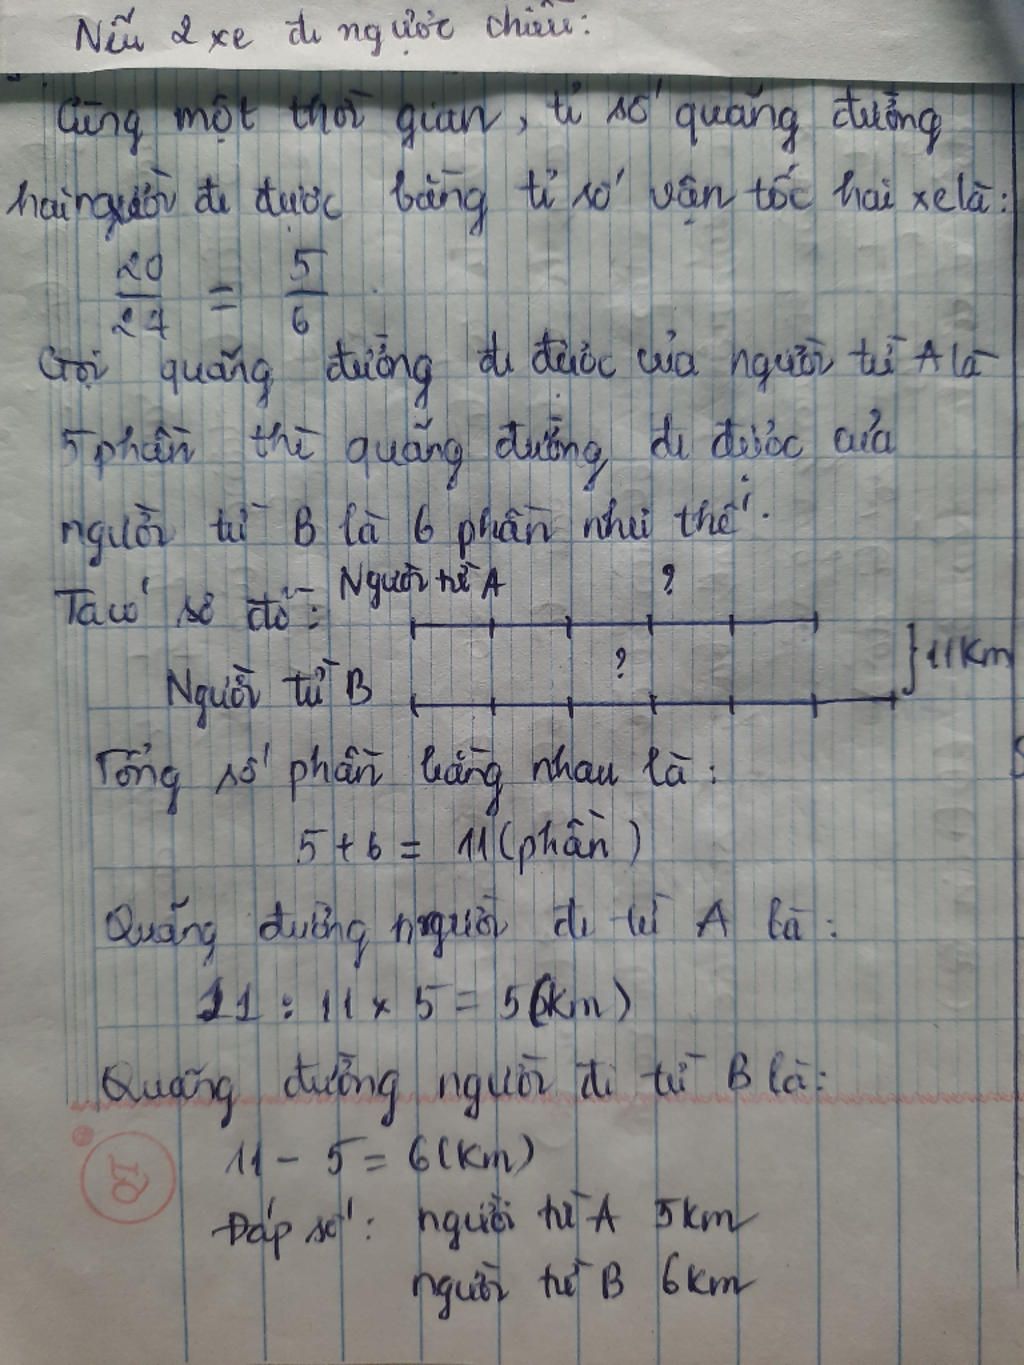 Nếu 2 xe đi ngược chiều:
Cùng một thời gian, tỉ số quãng đường
hai người đi được bằng tỉ số vận tốc hai xe là:
20/24 = 5/6
Gọi quãng đường đi được của người từ A là
5 phần thì quãng đường đi được của
người từ B là 6 phần như thế.
Ta có sơ đồ: Người từ A ?
Người từ B ? 11 Km
Tổng số phần bằng nhau là:
5 + 6 = 11 (phần)
Quãng đường người đi từ A là:
11 : 11 x 5 = 5 (km)
Quãng đường người đi từ B là:
11 - 5 = 6 (Km)
Đáp số: người từ A 5km
người từ B 6km